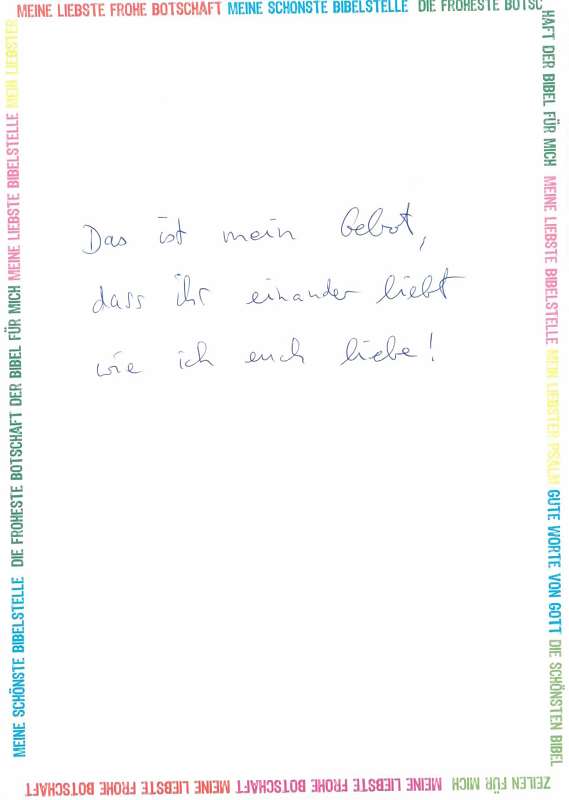 MEINE LIEBSTE FROHE BOTSCHAFT MEINE SCHÖNSTE BIBELSTELLE DIE FROHESTE BOTSC
HAFT DER BIBEL FÜR MICH MEINE LIEBSTE BIBELSTELLE MEIN LIEBSTER PSALM GUTE WORTE VON GOTT DIE SCHÖNSTEN BIBEL
ZEILEN FÜR MICH MEINE LIEBSTE FROHE BOTSCHAFT MEINE LIEBSTE FROHE BOTSCHAFT
MEINE SCHÖNSTE BIBELSTELLE DIE FROHESTE BOTSCHAFT DER BIBEL FÜR MICH MEINE LIEBSTE BIBELSTELLE MEIN LIEBSTER
Das ist mein Gebot,
dass ihr einander liebt
wie ich euch liebe!